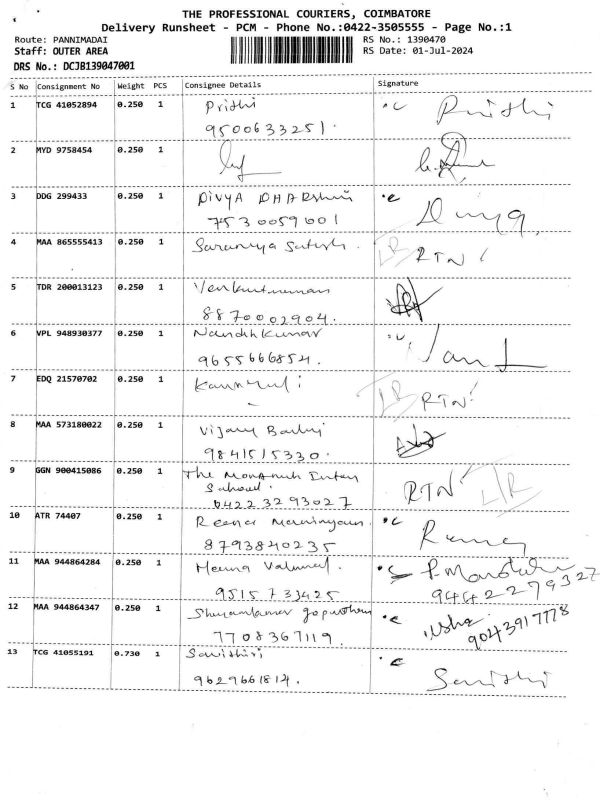 THE PROFESSIONAL COURIERS, COIMBATORE
Delivery Runsheet - PCM - Phone No.:0422-3505555 - Page No.:1
Route: PANNIMADAI RS No.: 1390470
Staff: OUTER AREA RS Date: 01-Jul-2024
DRS No.: DCJB139047001
S No Consignment No Weight PCS Consignee Details Signature
1 TCG 41052894 0.250 1 Prithi Prithi
9500633251.
2 MYD 9758454 0.250 1
3 DDG 299433 0.250 1 DIVYA DHARshini
7530059001
4 MAA 865555413 0.250 1 Saranya Satish. RTN
5 TDR 200013123 0.250 1 Venkatraman
8870002904.
6 VPL 948930377 0.250 1 Nandhkumar
9655666854.
7 EDQ 21570702 0.250 1 RTN
8 MAA 573180022 0.250 1 Vijay
9841515330.
9 GGN 900415086 0.250 1 The RTN
School.
04223293027
10 ATR 74407 0.250 1 Reena
8793840235
11 MAA 944864284 0.250 1 Meena
9515733425 9442279327
12 MAA 944864347 0.250 1 Usha
7708367119. 9043917778
13 TCG 41055191 0.730 1 Savithiri
9629661814.